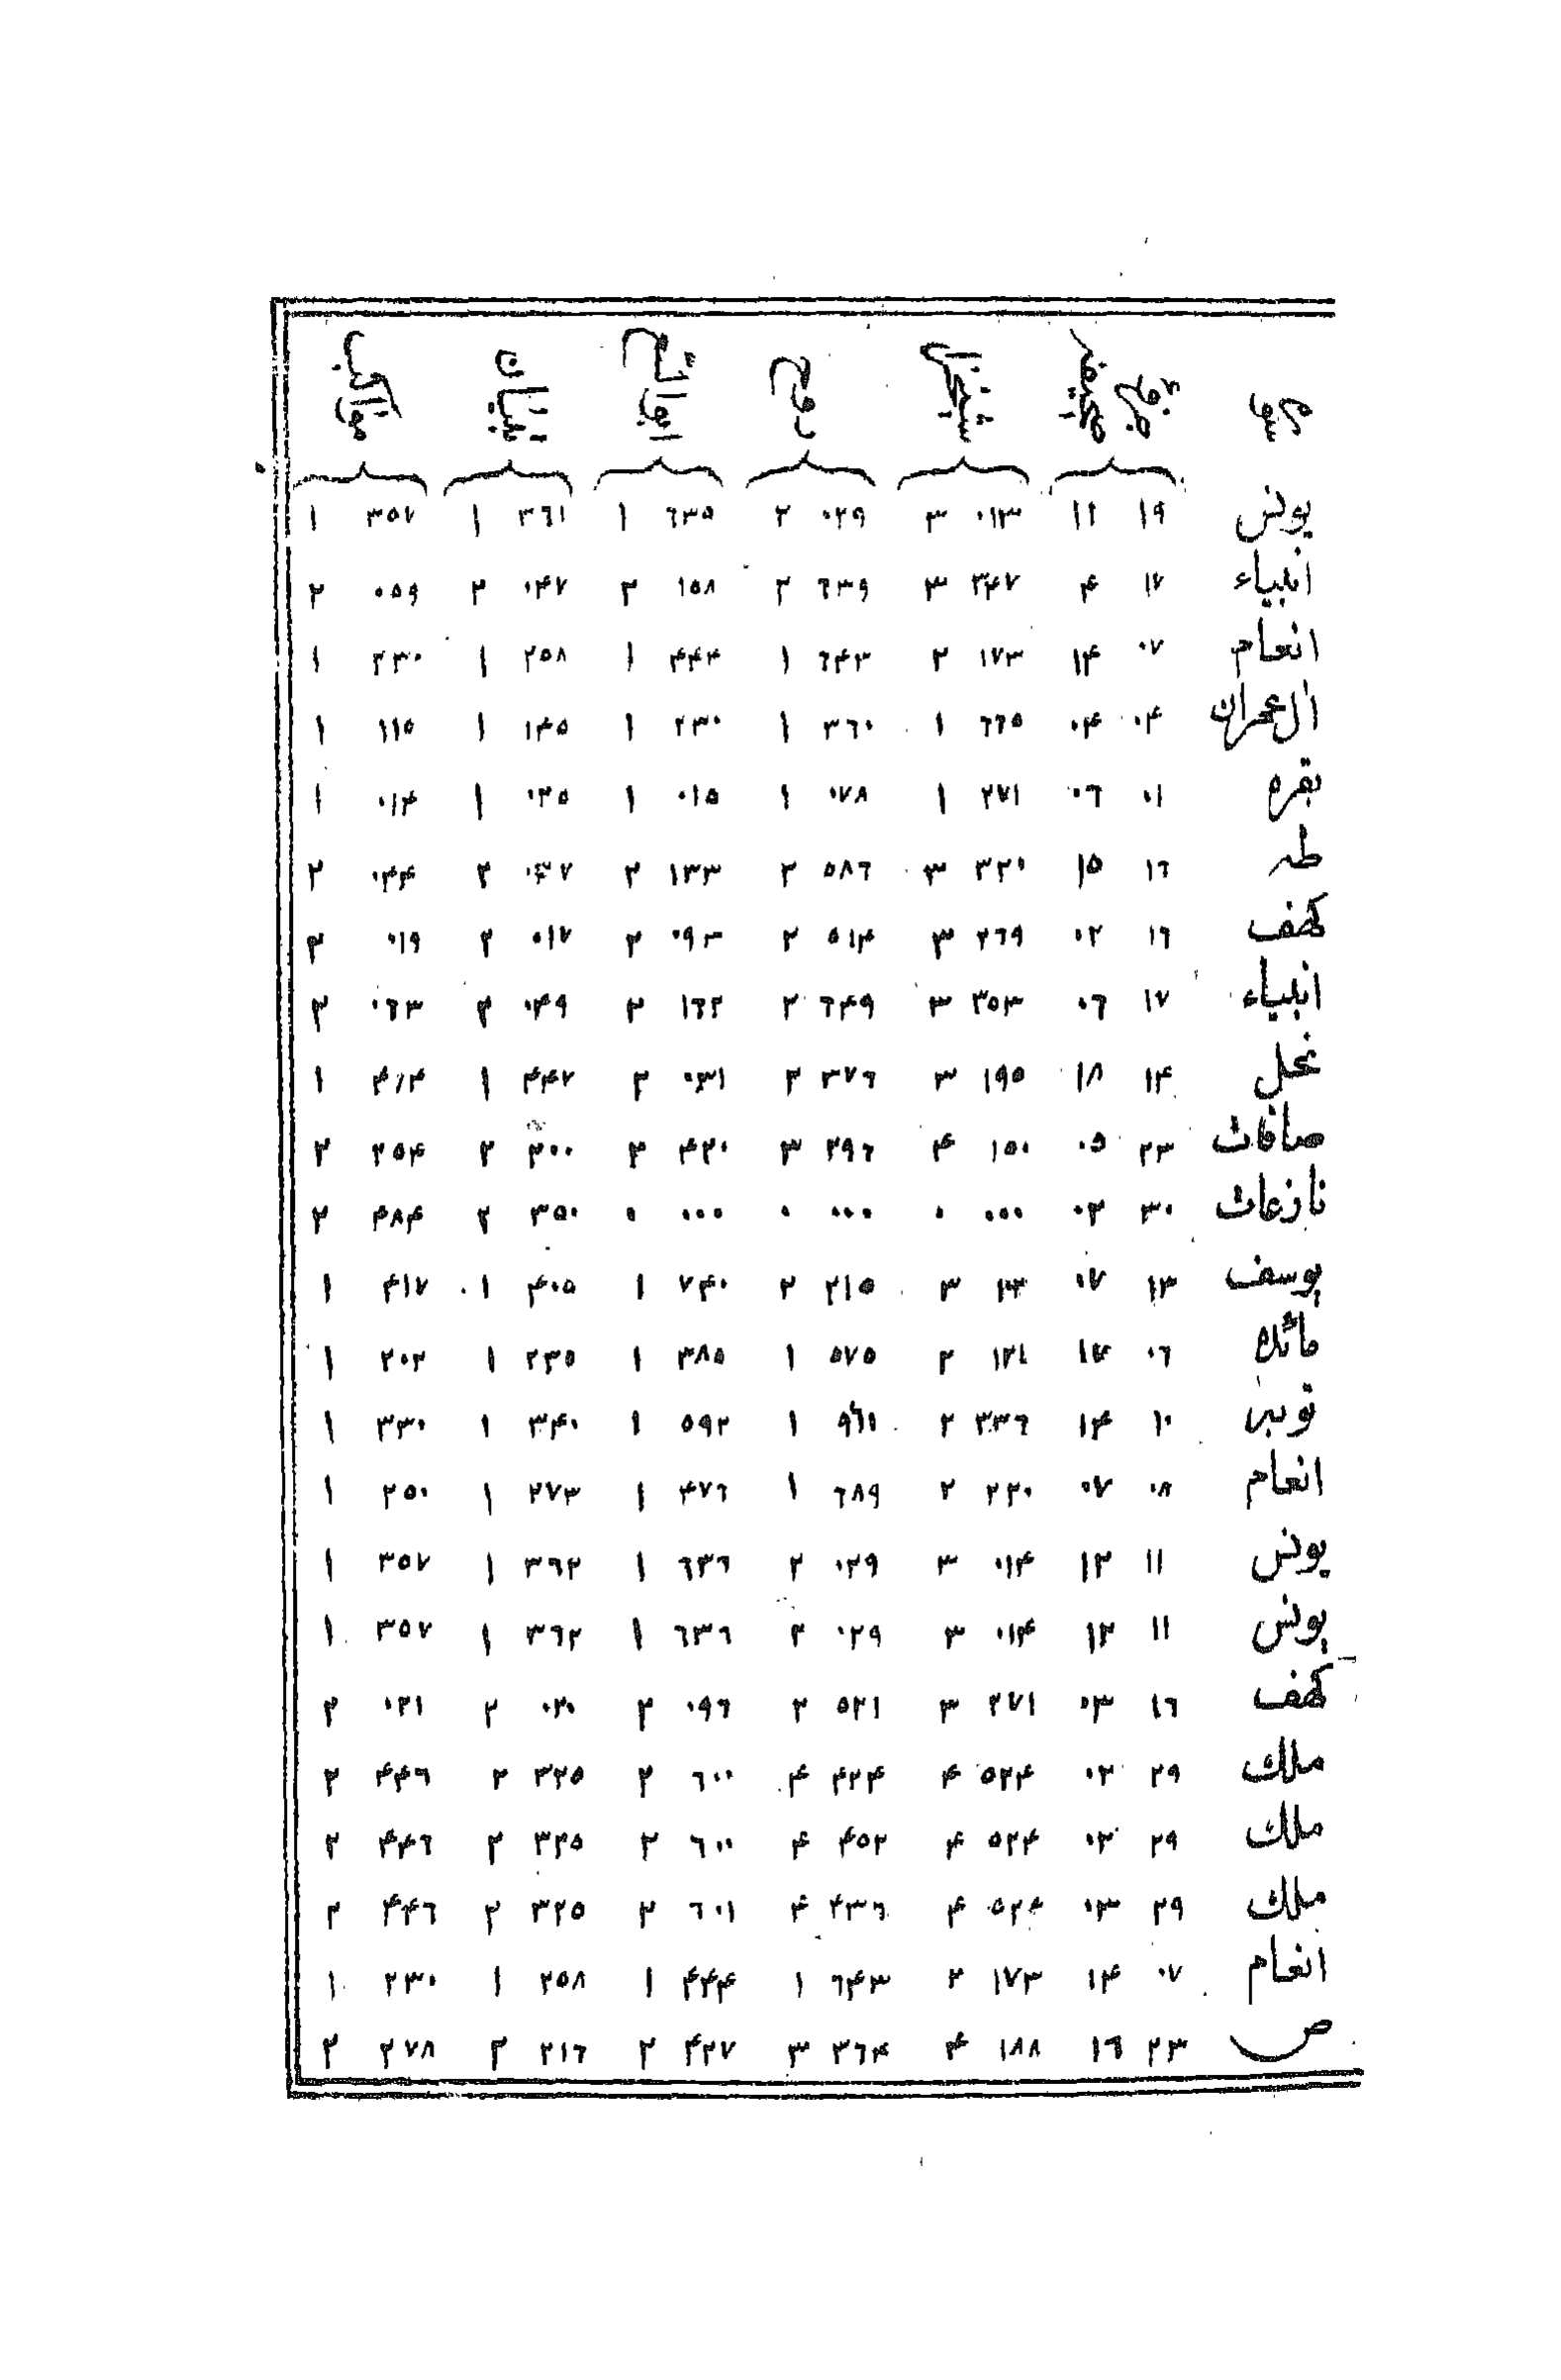 سوره
یونس ۱۹ ۱۱ ۰۱۳ ۳ ۰۲۹ ۲ ٦۳۵ ۱ ۳٦۱ ۱ ۳۵۷ ۱
انبیاء ۱۷ ۴ ۳۴۷ ۳ ٦۳۹ ۲ ۱۵۸ ۲ ۰۴۷ ۲ ۰۵۹ ۲
انعام ۰۷ ۱۴ ۱۷۳ ۲ ٦۴۳ ۱ ۴۴۴ ۱ ۲۵۸ ۱ ۲۳۰ ۱
اٰل عمران ۰۴ ۰۴ ٦٦۵ ۱ ۳٦۰ ۱ ۲۳۰ ۱ ۱۴۵ ۱ ۱۱۵ ۱
بقره ۰۱ ۰٦ ۲۷۱ ۱ ۰۷۸ ۱ ۰۱۵ ۱ ۰۲۵ ۱ ۰۱۴ ۱
طه ۱٦ ۱۵ ۳۲۰ ۳ ۵۸٦ ۲ ۱۳۳ ۲ ۰۳۷ ۲ ۰۴۴ ۲
کهف ۱٦ ۰۲ ۲٦۹ ۳ ۵۱۴ ۲ ۰۹۳ ۲ ۰۱۷ ۲ ۰۱۹ ۲
انبیاء ۱۷ ۰٦ ۳۵۳ ۳ ٦۴۹ ۲ ۱٦۲ ۲ ۰۴۹ ۲ ۰٦۳ ۲
نحل ۱۴ ۱۸ ۱۹۵ ۳ ۳۷٦ ۲ ۰۳۱ ۲ ۴۴۷ ۱ ۴۱۴ ۱
صافات ۲۳ ۰۵ ۱۵۰ ۴ ۲۹٦ ۳ ۴۲۰ ۲ ۲۰۰ ۲ ۲۵۴ ۲
نازعات ۳۰ ۰۳ ۰۰۰ ۰ ۰۰۰ ۰ ۰۰۰ ۰ ۳۵۰ ۲ ۴۸۴ ۲
یوسف ۱۳ ۰۷ ۳ ۲۱۵ ۲ ۷۴۰ ۱ ۴۰۵ ۱ ۴۱۷ ۱
مائده ۰٦ ۲ ۵۷۵ ۱ ۳۸۵ ۱ ۲۳۵ ۱ ۲۰۲ ۱
توبه ۱۰ ۱۴ ۳۳٦ ۲ ۱ ۵۹۲ ۱ ۳۴۰ ۱ ۳۳۰ ۱
انعام ۰۸ ۰۷ ۲۲۰ ۲ ٦۸۹ ۱ ۴۷٦ ۱ ۲۷۳ ۱ ۲۵۰ ۱
یونس ۱۱ ۱۲ ۰۱۴ ۳ ۰۲۹ ۲ ٦۳٦ ۱ ۳٦۲ ۱ ۳۵۷ ۱
یونس ۱۱ ۱۲ ۰۱۴ ۳ ۰۲۹ ۲ ٦۳٦ ۱ ۳٦۲ ۱ ۳۵۷ ۱
کهف ۱٦ ۰۳ ۲۷۱ ۳ ۵۲۱ ۲ ۰۹٦ ۲ ۰۲۰ ۲ ۰۲۱ ۲
ملك ۲۹ ۰۲ ۵۲۴ ۴ ۴۲۴ ۴ ٦۰۰ ۲ ۳۲۵ ۲ ۴۴٦ ۲
ملك ۲۹ ۰۲ ۵۲۴ ۴ ۴۵۲ ۴ ٦۰۰ ۲ ۳۲۵ ۲ ۴۴٦ ۲
ملك ۲۹ ۰۳ ۵۲۴ ۴ ۴۳٦ ۴ ٦۰۱ ۲ ۳۲۵ ۲ ۴۴٦ ۲
انعام ۰۷ ۱۴ ۱۷۳ ۲ ٦۴۳ ۱ ۴۴۴ ۱ ۲۵۸ ۱ ۲۳۰ ۱
ص ۲۳ ۱٦ ۱۸۸ ۴ ۳٦۴ ۳ ۴۲۷ ۲ ۲۱٦ ۲ ۲۷۸ ۲